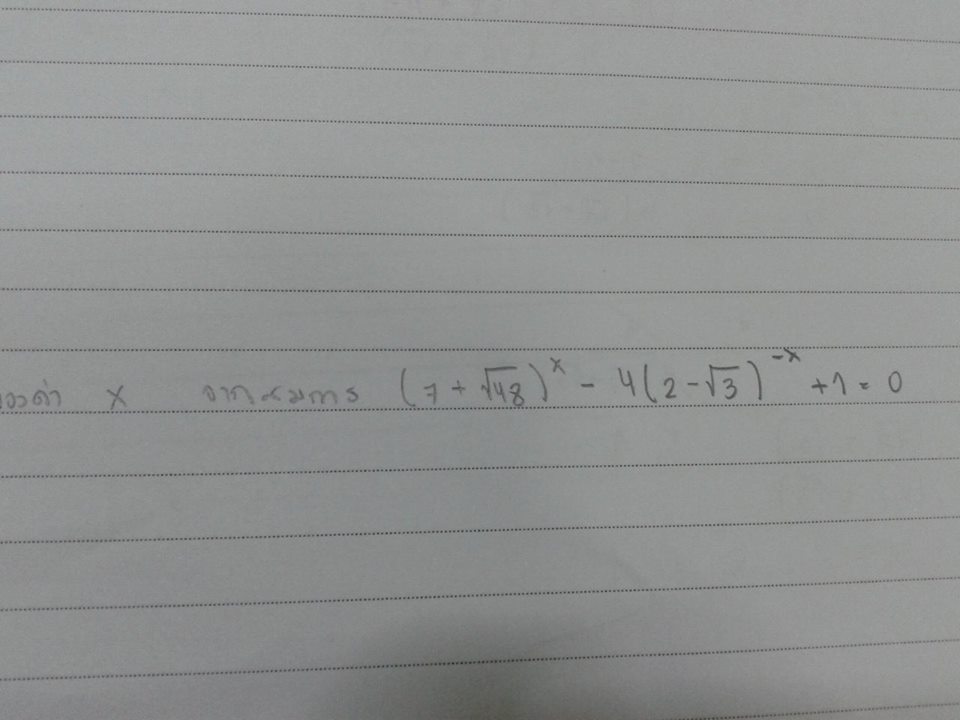 ของค่า x จากสมการ (7 + √48)^x - 4(2 - √3)^-x + 1 = 0